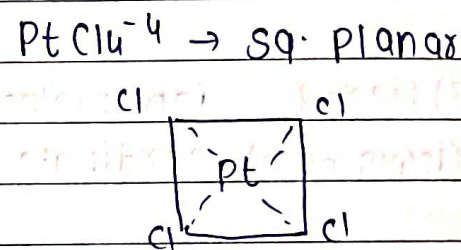 PtCl4⁻⁴ → sq. planar
Cl Cl
Pt
Cl Cl